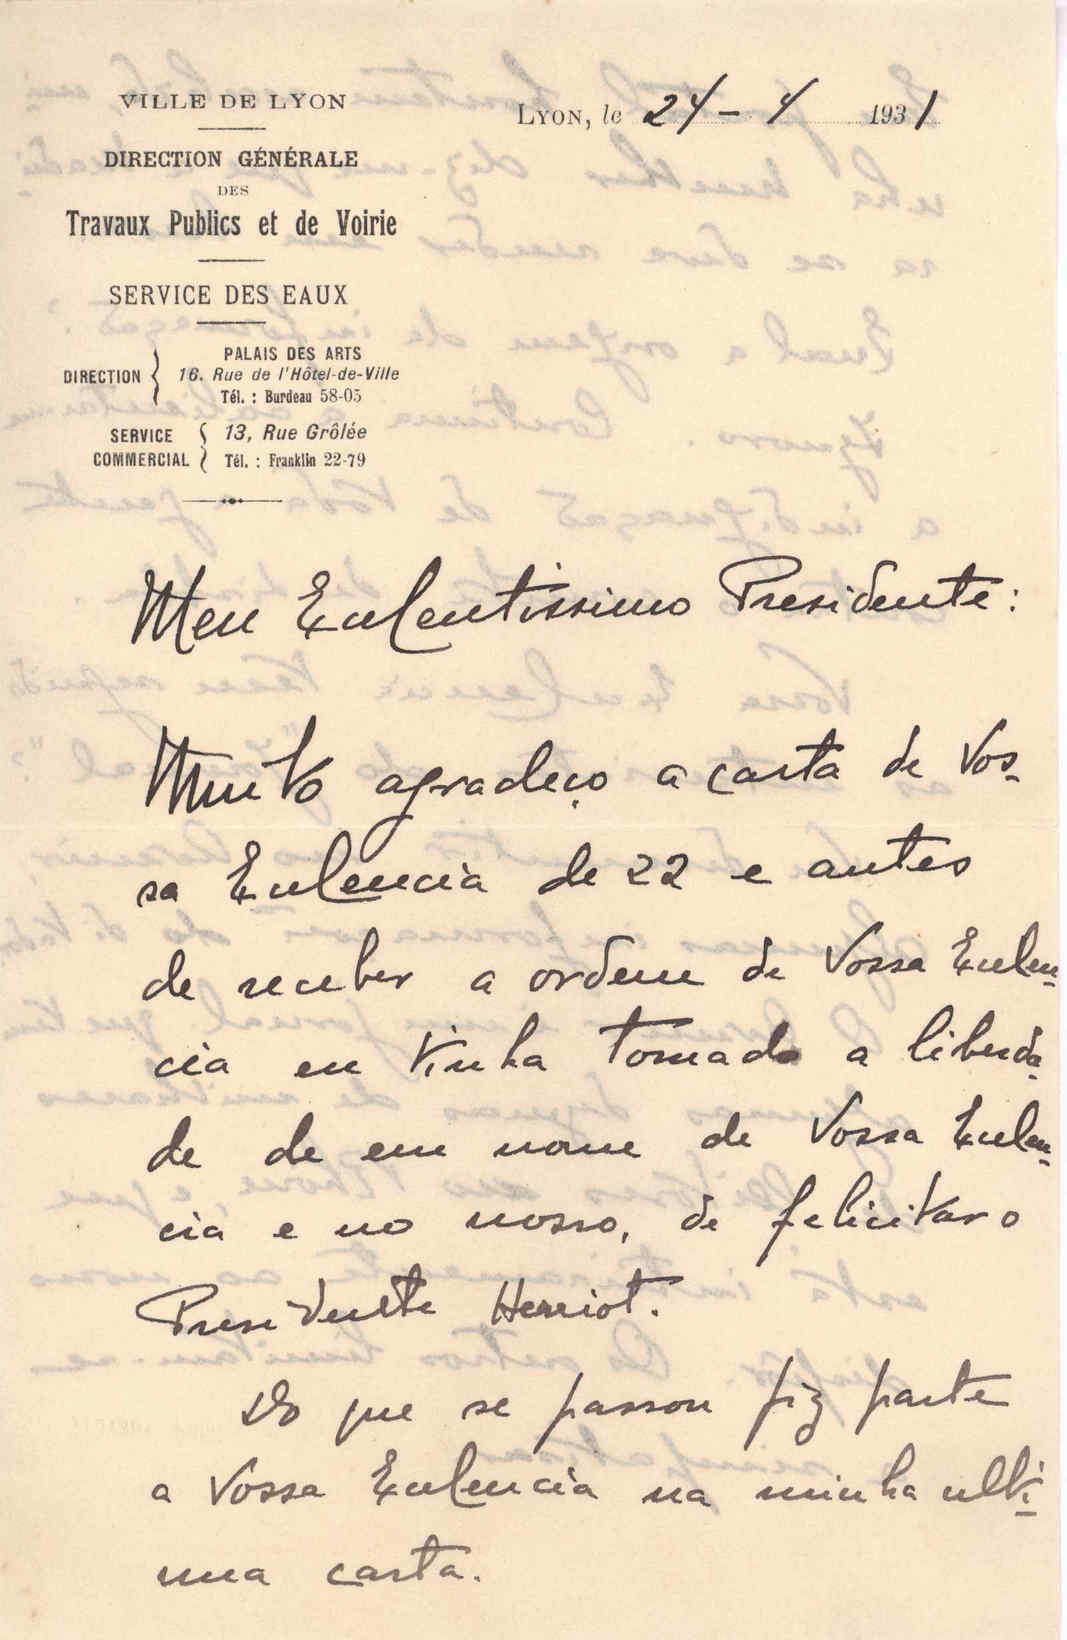 VILLE DE LYON
DIRECTION GÉNÉRALE
DES
Travaux Publics et de Voirie
SERVICE DES EAUX
DIRECTION { PALAIS DES ARTS
16, Rue de l'Hôtel-de-Ville
Tél. : Burdeau 58-05
SERVICE COMMERCIAL { 13, Rue Grôlée
Tél. : Franklin 22-79
LYON, le 24-4 1931
Meu Exclentissimo Presidente:
Muito agradeço a carta de Vos-
sa Exclencia de 22 e antes
de receber a ordem de Vossa Exclen-
cia eu tinha tomado a liberda-
de de em nome de Vossa Exclen-
cia e no nosso, de felicitar o
Presidente Herriot.
Do que se passou fiz parte
a Vossa Exclencia na minha ulti-
ma carta.